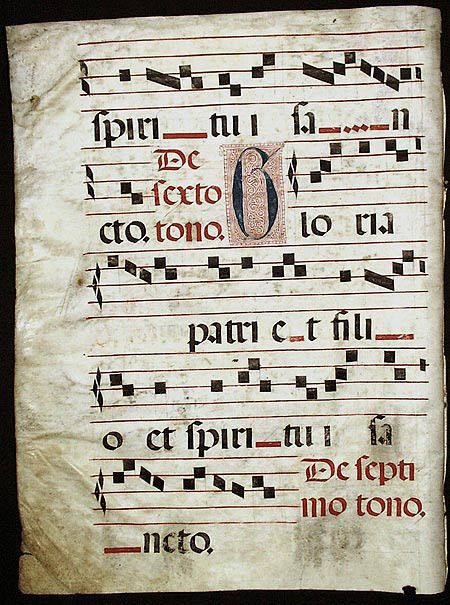 spiri tui sa n
De
sexto
cto. tono. Glo ria
patri e t fili
o et spiri tui sa
De septi
mo tono.
ncto.